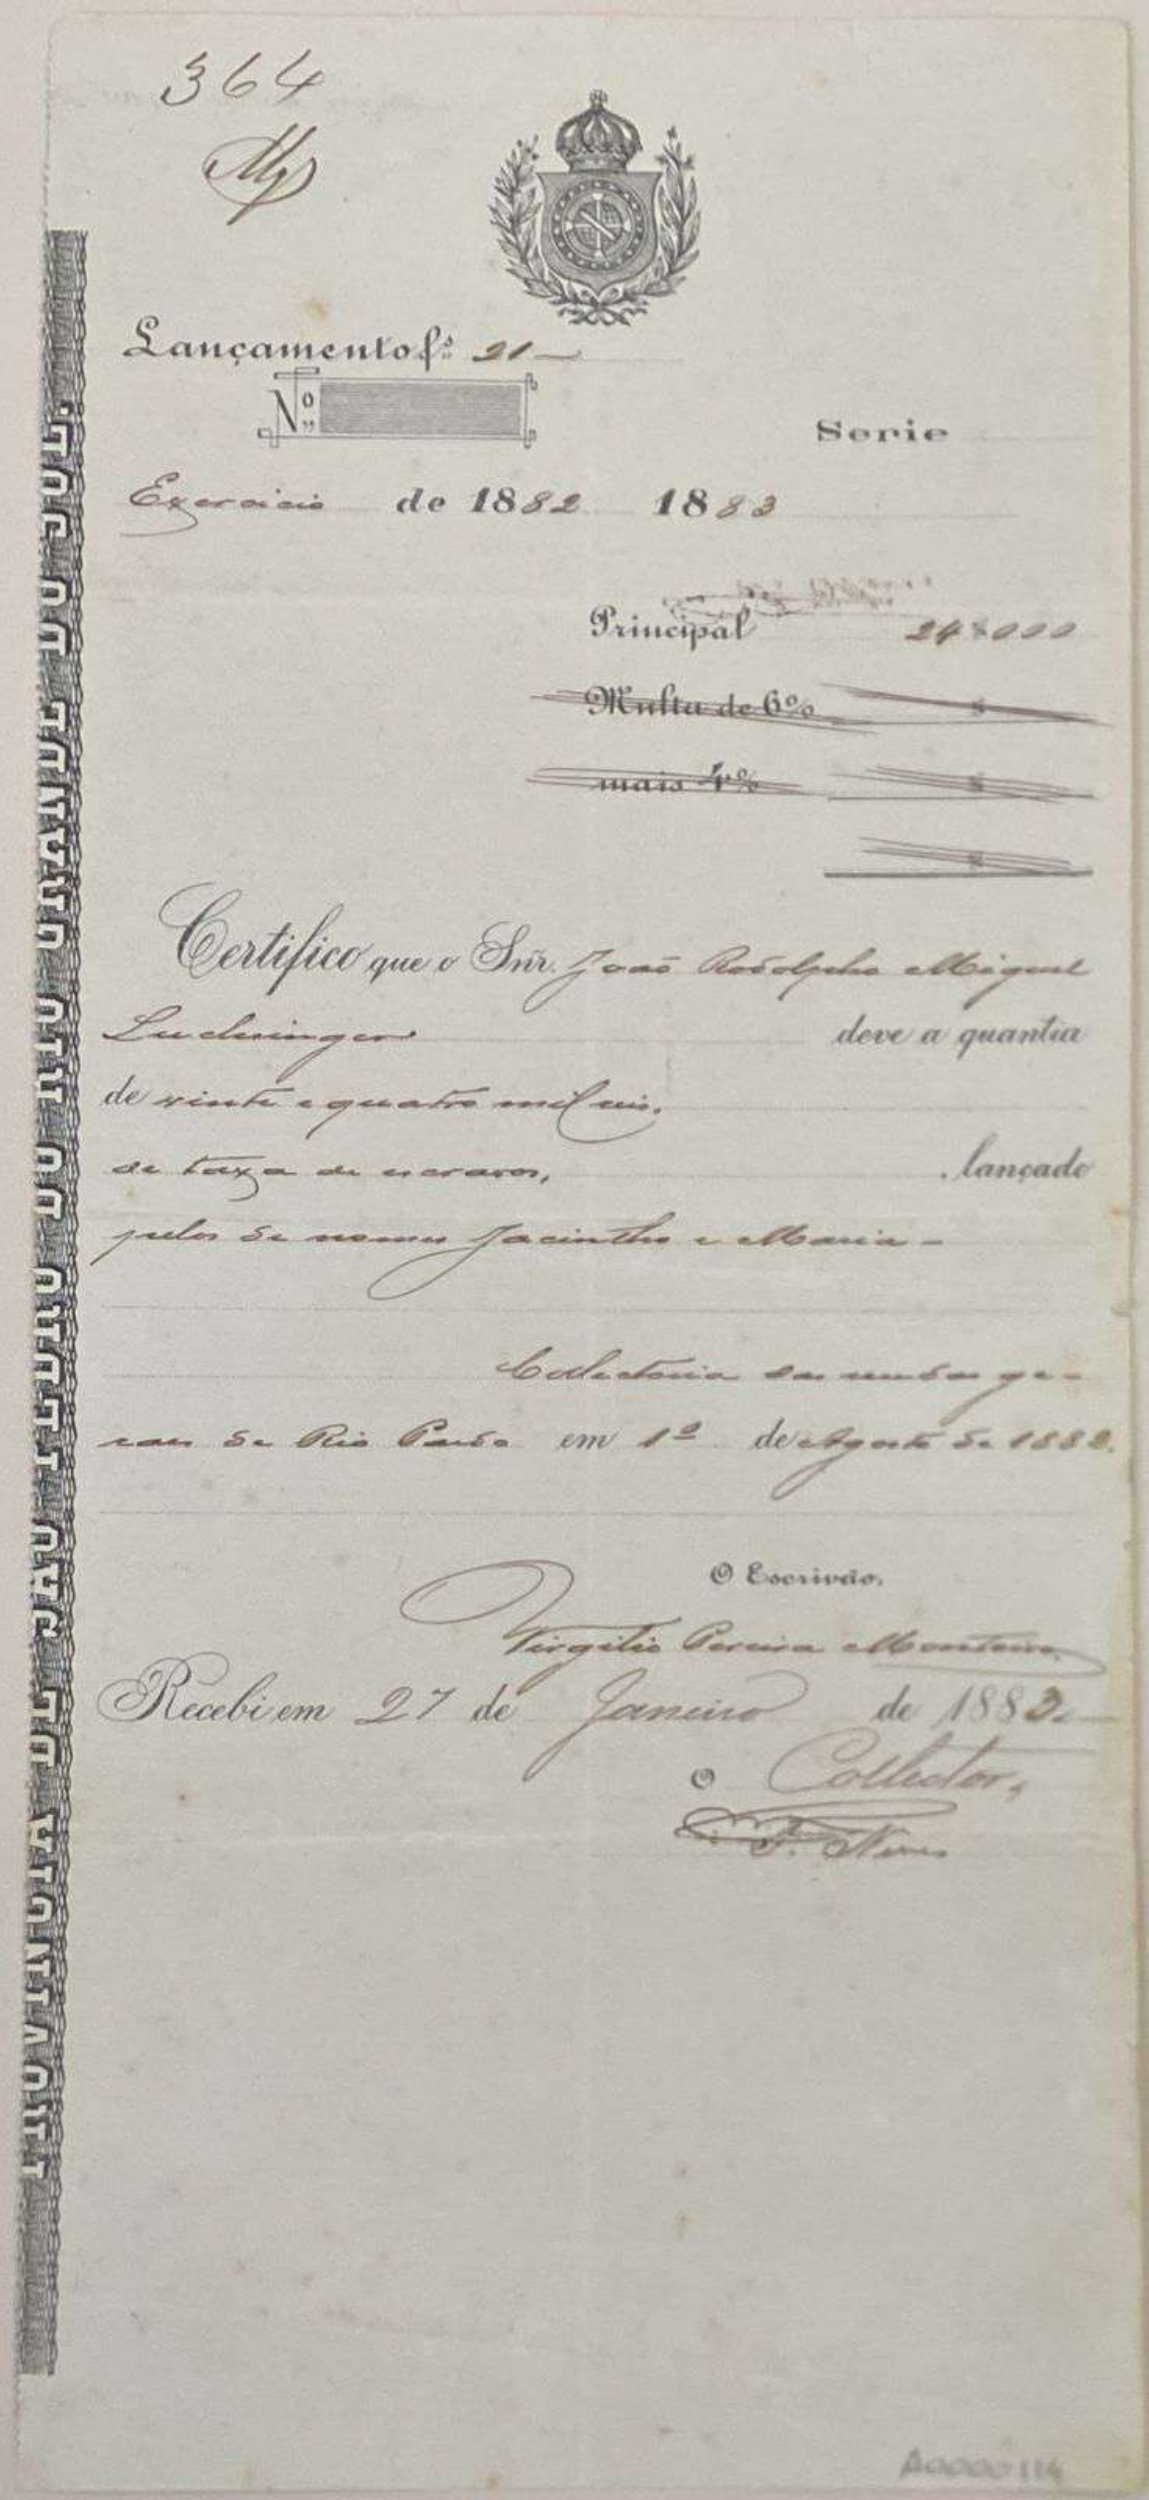 364
Lançamento fs. 21
Nº
Serie
Exercicio de 1882 1883
Principal 24$000
Multa de 6%
mais 4%
Certifico que o Snr. João Rodolpho Miguel
Luchsinger deve a quantia
de vinte e quatro mil reis.
de taxa de escravos, lançado
pelos de nomes Jacintho e Maria -
Collectoria das rendas ge-
raes de Rio Pardo em 1º de Agosto de 1882.
O Escrivão.
Virgilio Pereira Monteiro
Recebi em 27 de Janeiro de 1883.
O Collector,
F. Neves
A0000114